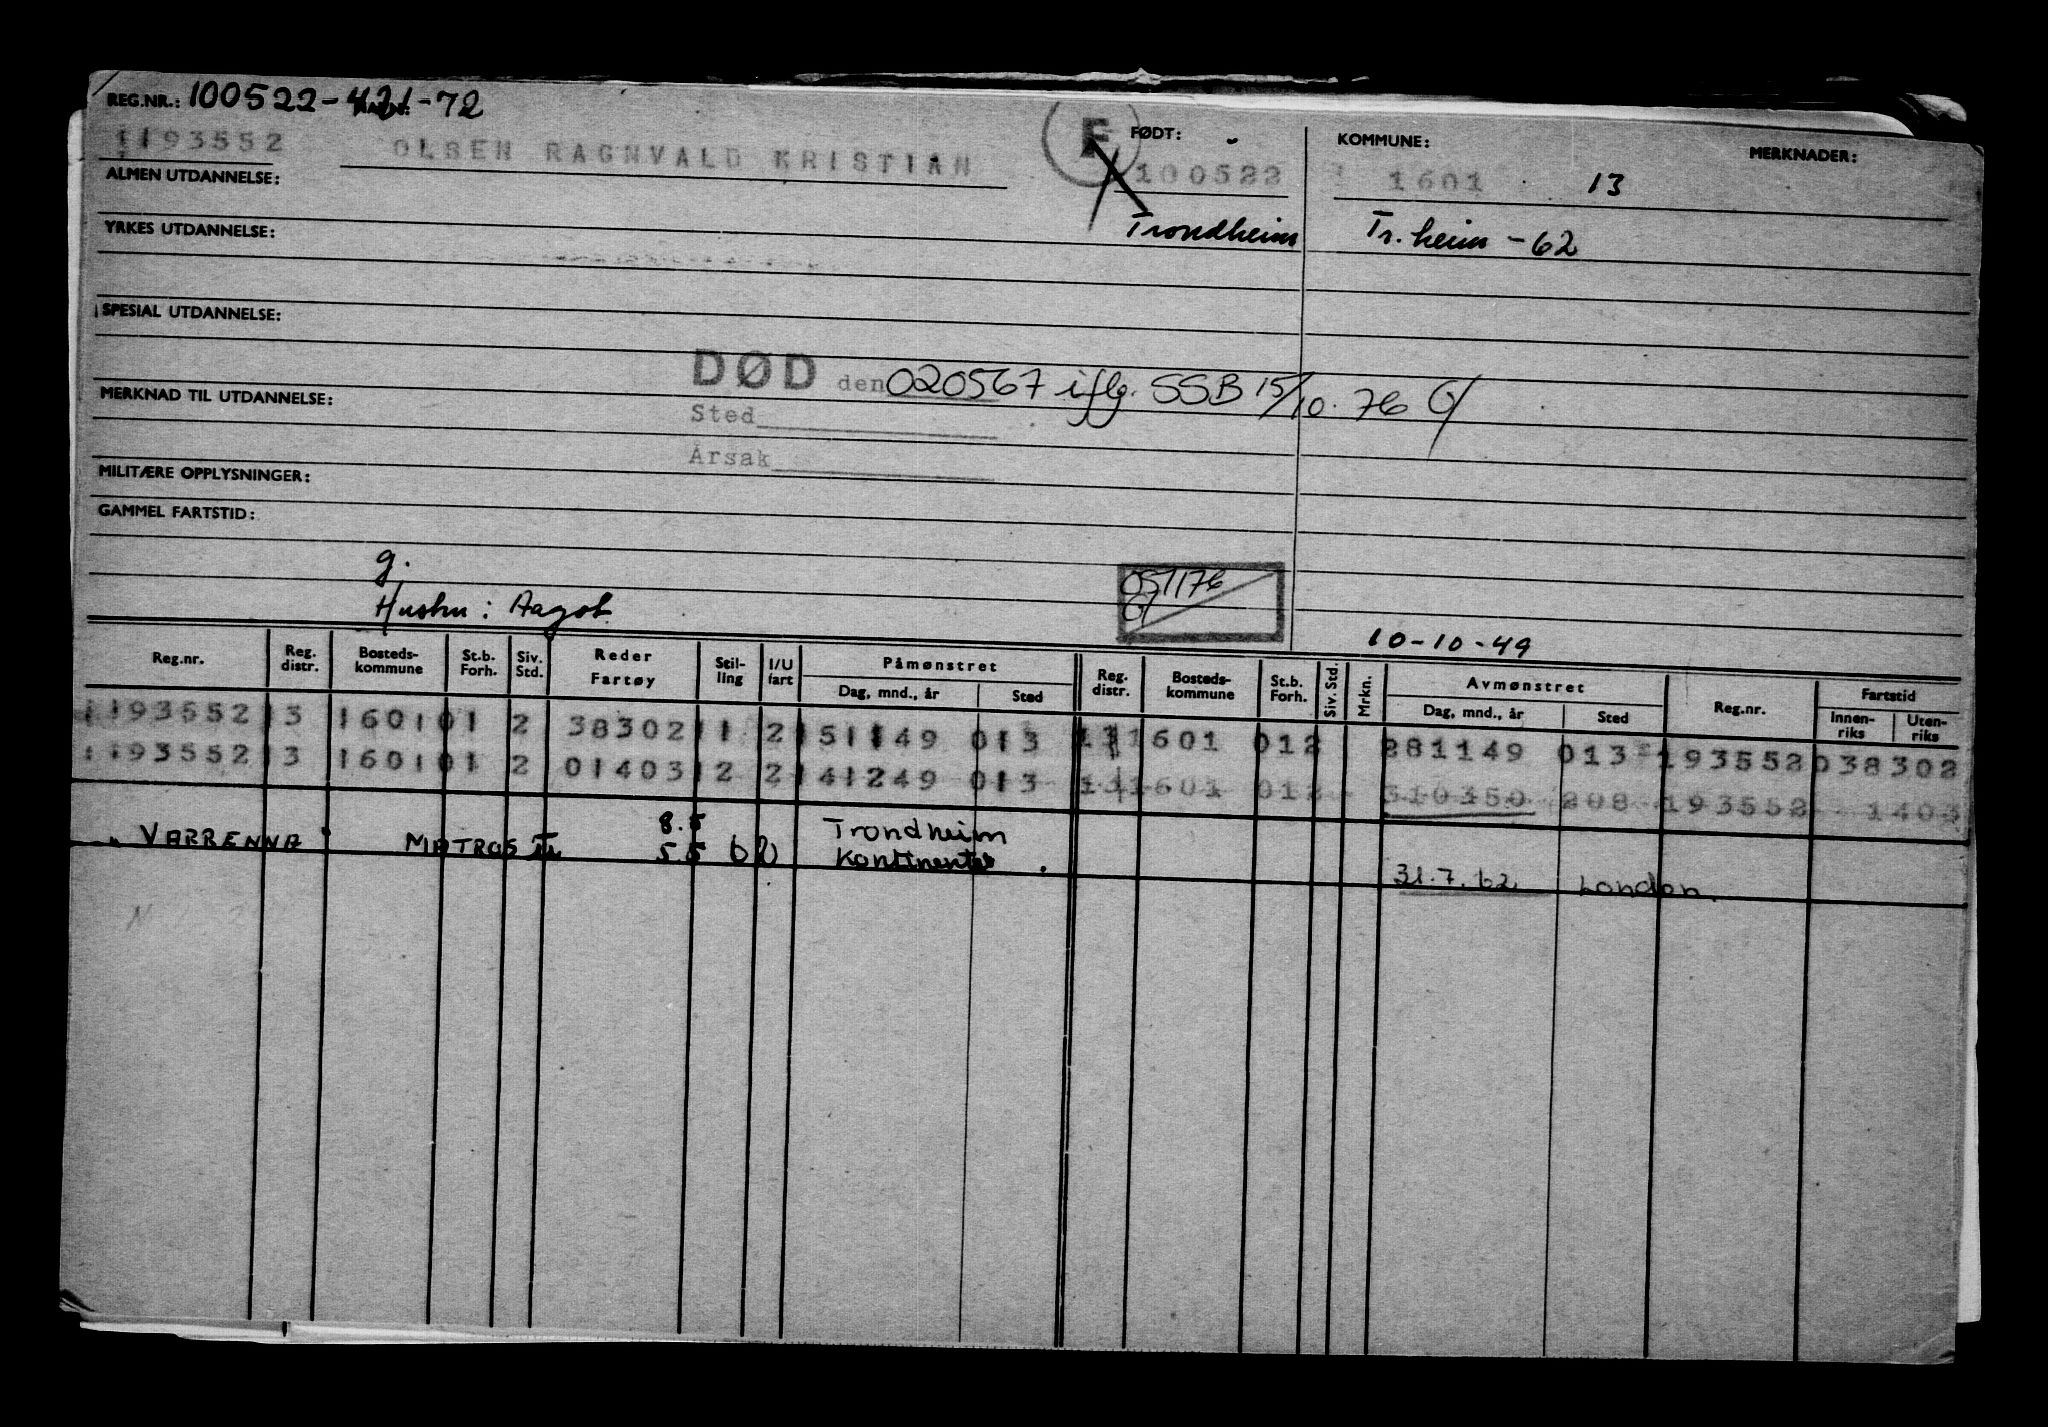 REG.NR.: 100522-421-72
FØDT: KOMMUNE: MERKNADER:
1193552 OLSEN RAGNVALD KRISTIAN F 100522 1601 13
ALMEN UTDANNELSE:
Trondheim Tr.heim -62
YRKES UTDANNELSE:
SPESIAL UTDANNELSE:
DØD den 020567 iflg. SSB 15/10.76
MERKNAD TIL UTDANNELSE:
Sted
Årsak
MILITÆRE OPPLYSNINGER:
GAMMEL FARTSTID:
g.
051176
Hustru: Aagot
10-10-49
Reg.nr. Reg. distr. Bosteds- kommune St.b. Forh. Siv. Std. Reder Fartøy Stil- ling I/U fart Påmønstret Dag, mnd., år Sted Reg. distr. Bosteds- kommune St.b. Forh. Siv. Std. Mrkn. Avmønstret Dag, mnd., år Sted Reg.nr. Fartstid Innen- riks Uten- riks
1193552 13 1601 01 2 38302 11 2 151149 013 13 1601 012 281149 013 193552 038302
1193552 13 1601 01 2 01403 12 2 141249 013 13 1601 012 310350 208 193552 1403
8.5 Trondheim
"VARRENNA" MATROS Tr 5.5 62 Kontinentet
31.7.62 London